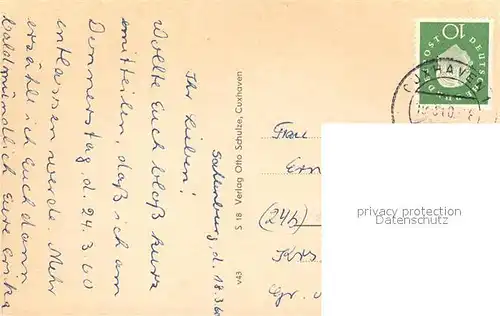 Sahlenburg, d. 18.3.60
Ihr Lieben!
Wollte Euch bloß kurz
mitteilen, daß ich am
Donnerstag, d. 24.3.60
entlassen werde. Mehr
erzähle ich Euch dann
bald mündlich Eure Erika
S 18 Verlag Otto Schulze, Cuxhaven
v43
DEUTSCHE BUNDESPOST
10
CUXHAVEN
Frau
(24b)
Krs.
privacy protection
Datenschutz